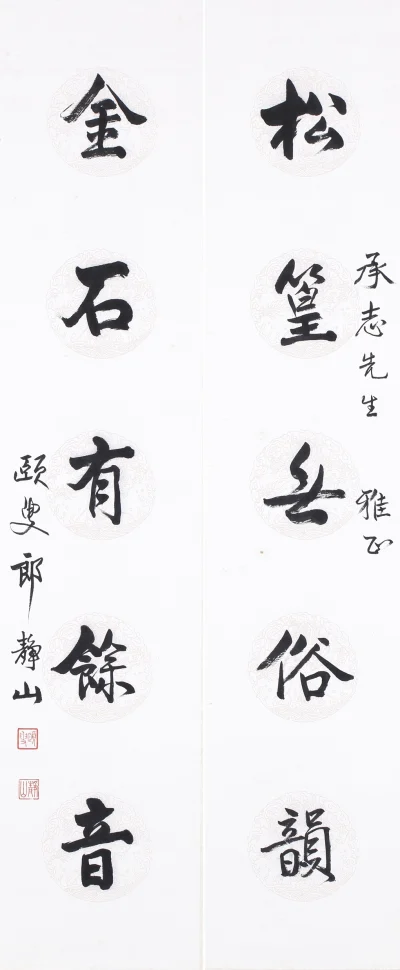 承志先生 雅正
松篁無俗韻
金石有餘音
頤叟郎靜山